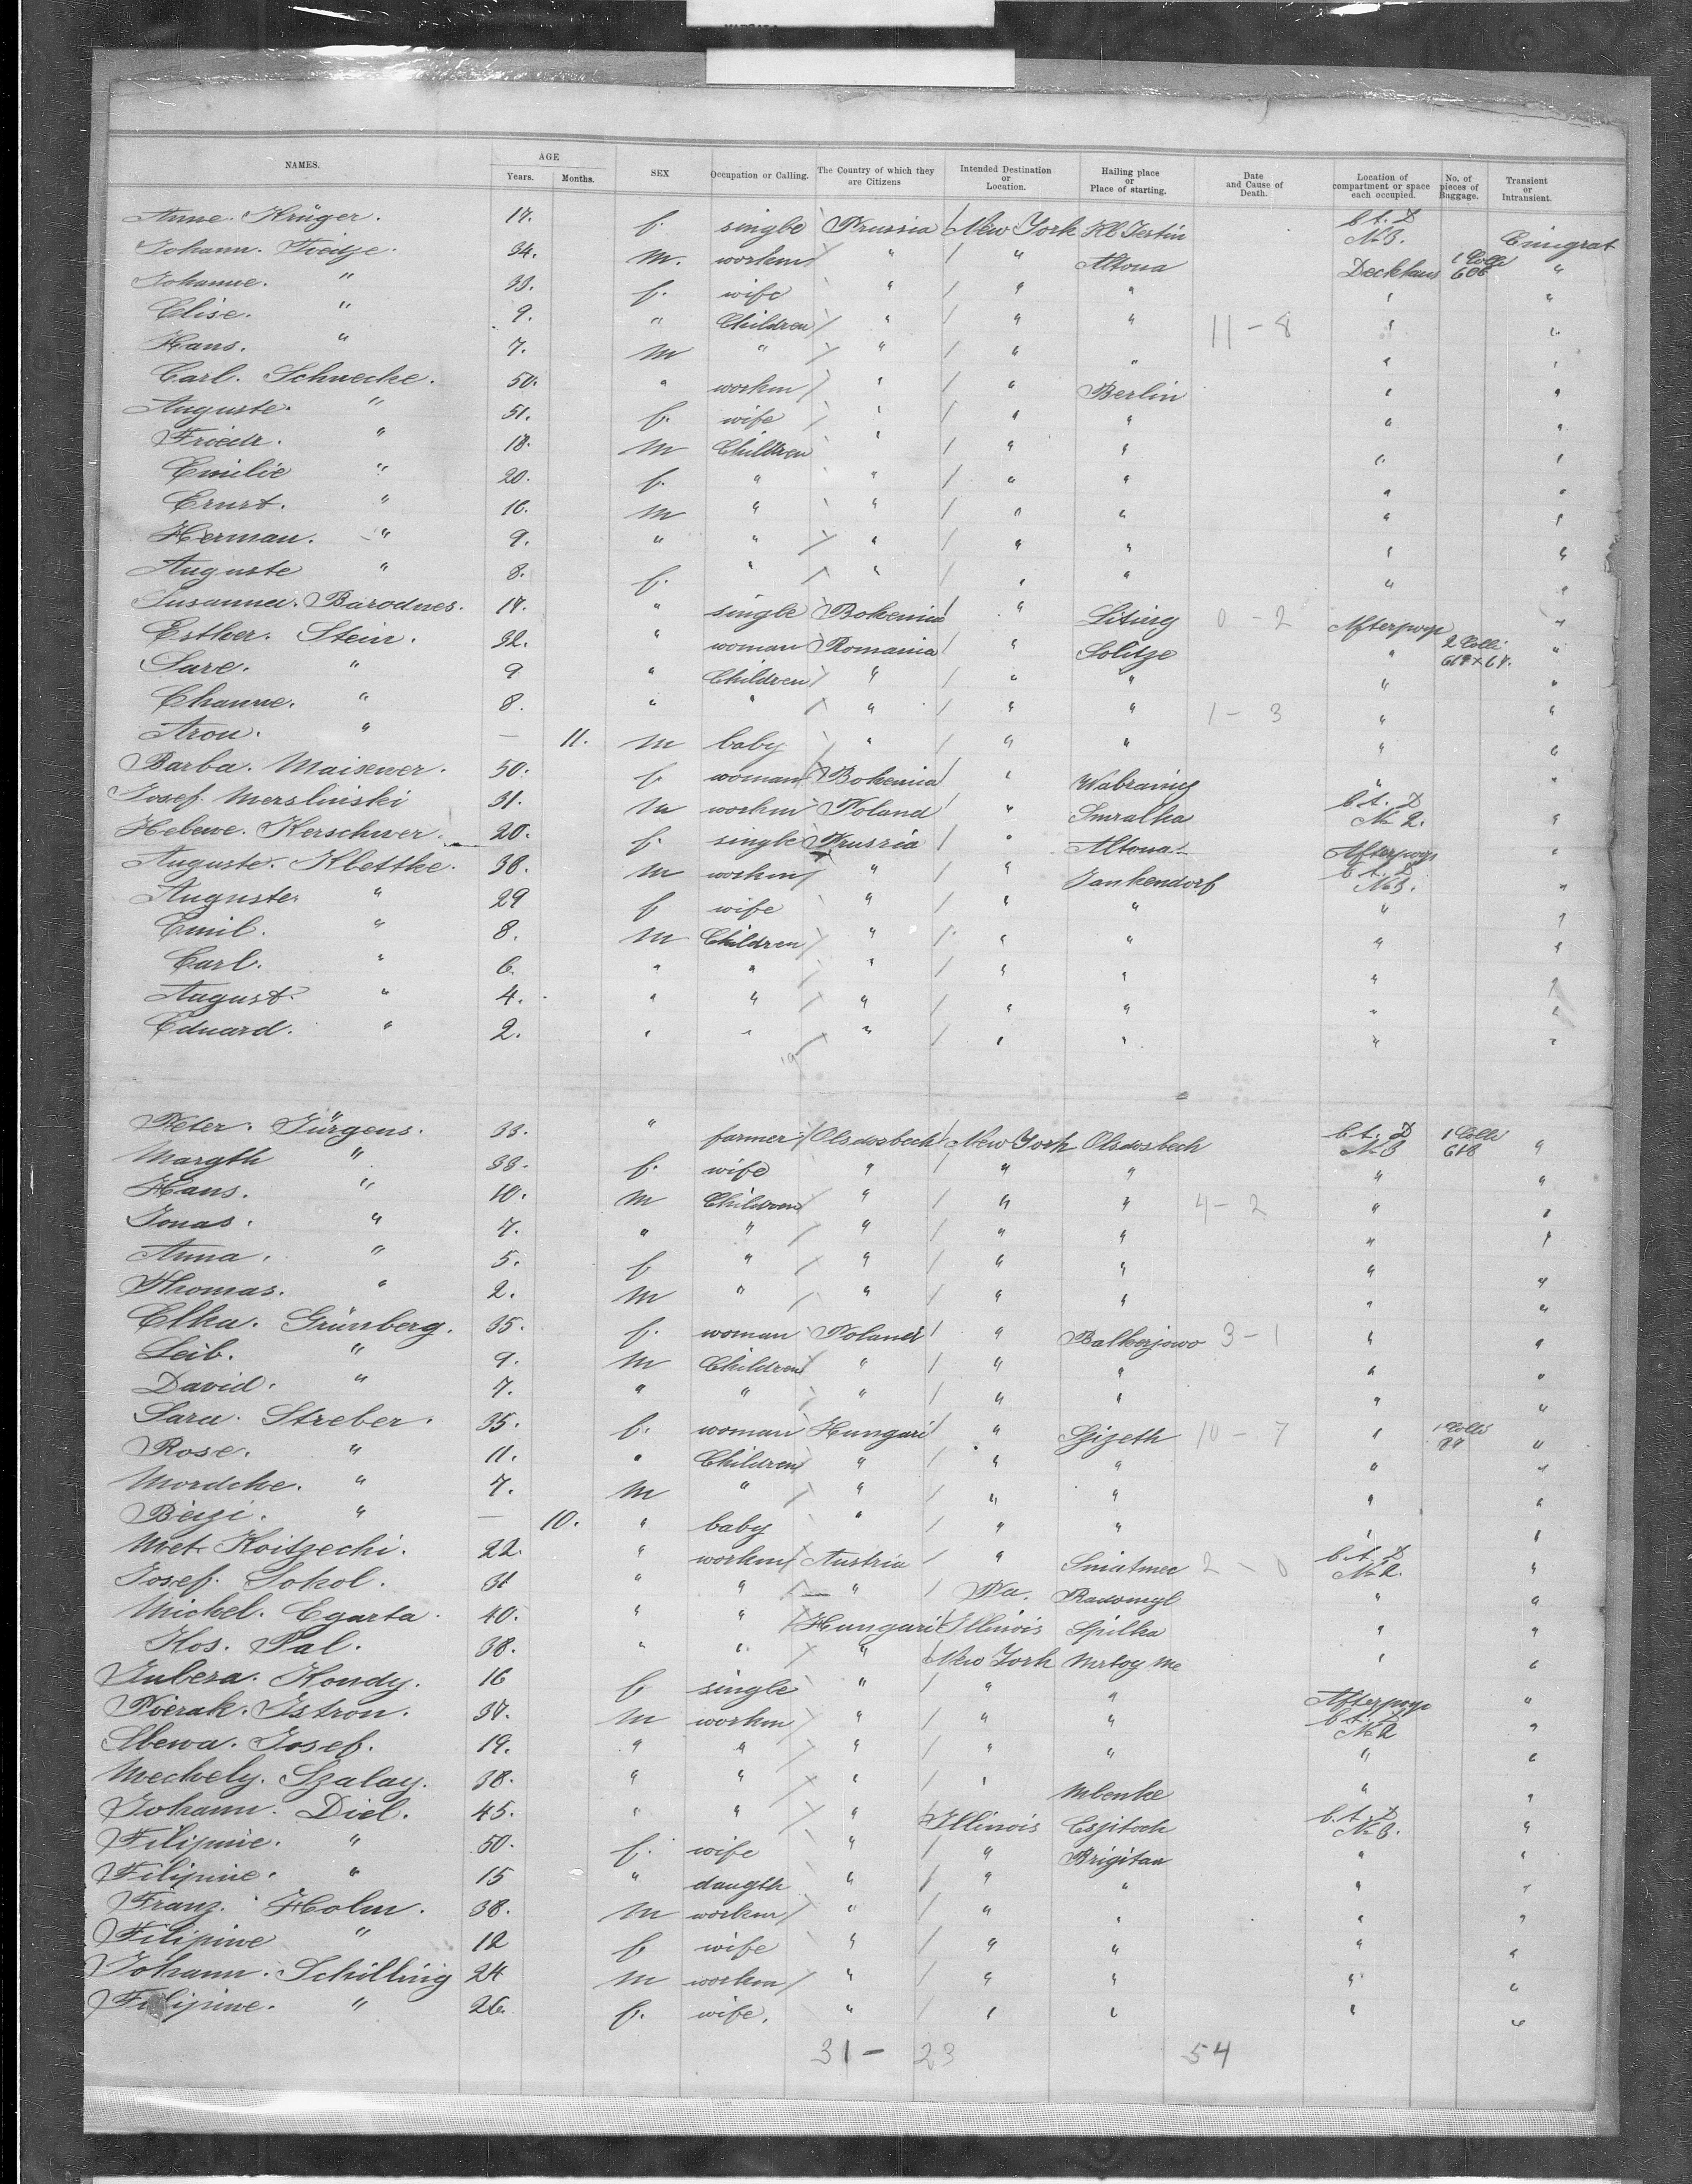 NAMES. AGE Years. Months. SEX Occupation or Calling. The Country of which they are Citizens Intended Destination or Location. Hailing place or Place of starting. Date and Cause of Death. Location of compartment or space each occupied. No. of pieces of Baggage. Transient or Intransient.
Anne. Krüger. 17. f. single Prussia New York Kl Testin N 3. Emigrat
Johann. Tiedje. 34. M. workm " " Altona Deckhaus 1 Colli 606 "
Johanne. " 33. f. wife " " " " "
Elise. " 9. " Children " " " 11 - 8 " "
Hans. " 7. M " " " " " "
Carl. Schnecke. 50. " workm " " Berlin " "
Auguste. " 51. f. wife " " " " "
Friedr. " 18. M Children " " " " "
Emilie " 20. f. " " " " " "
Ernst. " 16. M " " " " " "
Herman. " 9. " " " " " " "
Auguste " 8. f. " " " " " "
Susanna. Barodnes. 17. " single Bohemia " Liting 0 - 2 "
Esther. Stein. 32. " woman Romania " Solitze " 2 Colli "
Sare. " 9 " Children " " " " "
Channe. " 8. " " " " " 1 - 3 " "
Aron. " — 11. M baby " " " " "
Barba. Maisewer. 50. f. woman Bohemia " " "
Josef. Merslinski 31. M workm Poland " Smralka N 2. "
Helewe. Kerschwer. 20. f. single Prussia " Altona "
Auguste. Klettke. 38. M workm " " Jankendorf N 3. "
Auguste. " 29 f wife " " " " "
Emil. " 8. M Children " " " " "
Carl. " 6. " " " " " " "
August. " 4. " " " " " " "
Eduard. " 2. " " " " " " "
19
Peter. Jürgens. 33. " farmer Olsdorbeck New York Olsdosbech N 3 1 Colli 618 "
Margth " 33. f. wife " " " " "
Hans. " 10. M Children " " " 4 - 2 " "
Jonas. " 7. " " " " " " "
Anna. " 5. f " " " " " "
Thomas. " 2. M " " " " " "
Elka. Grünberg. 35. f. woman Poland " Balkerjowo 3 - 1 " "
Leib. " 9. M Children " " " " "
David. " 7. " " " " " " "
Sara. Streber. 35. f. woman Hungari " Szizeth 10 - 7 " 1 Colli "
Rose. " 11. " Children " " " " "
Mordche. " 7. M " " " " " "
Beizi. " — 10. " baby " " " " "
Met. Koitzechi. 22. " workm Austria " Sniatmec 2 - 0 N 2. "
Josef. Sokol. 31 " " " Pa. Radomyl " "
Michel. Egarta. 40. " " Hungari Illinois Spilka " "
Kos. Pal. 38. " " " New York Mrtoy Me " "
Jubera. Kondy. 16 f single " " " "
Pierak. Istron. 37. M workm " " " N 2 "
Slewa. Josef. 19. " " " " " " "
Mechely. Szalay. 38. " " " " Mbenke " "
Johann. Diel. 45. " " " Illinois Eszitoch N 3. "
Filipine. " 50. f. wife " " Brigitau " "
Filipine. " 15 " daugth " " " " "
Franz. Holm. 38. M workm " " " " "
Filipine " 12 f wife " " " " "
Johann. Schilling 24 M workm " " " " "
Filipine. " 26. f. wife. " " " " "
31 - 23 54